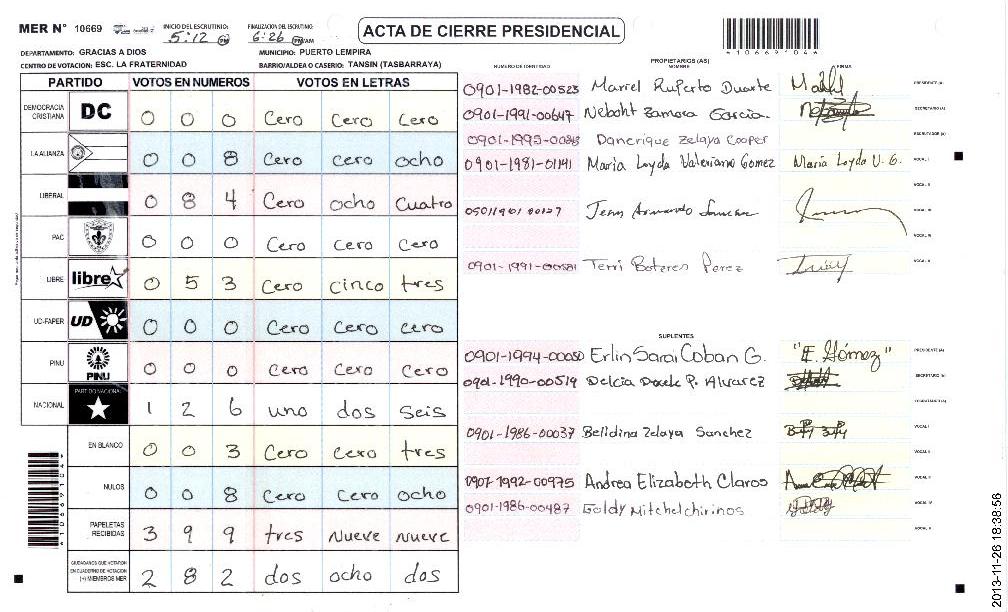 MER N° 10669
INICIO DEL ESCRUTINIO: 5:12 PM
FINALIZACION DEL ESCRUTINIO: 6:26 PM/AM
ACTA DE CIERRE PRESIDENCIAL
DEPARTAMENTO: GRACIAS A DIOS
MUNICIPIO: PUERTO LEMPIRA
CENTRO DE VOTACION: ESC. LA FRATERNIDAD
BARRIO/ALDEA O CASERIO: TANSIN (TASBARRAYA)
PARTIDO VOTOS EN NUMEROS VOTOS EN LETRAS
DEMOCRACIA CRISTIANA DC 0 0 0 Cero Cero Cero
LA ALIANZA 0 0 8 Cero cero ocho
LIBERAL 0 8 4 Cero ocho Cuatro
PAC 0 0 0 Cero Cero Cero
LIBRE libre 0 5 3 Cero cinco tres
UD-FAPER UD 0 0 0 Cero Cero cero
PINU PINU 0 0 0 Cero Cero Cero
NACIONAL PARTIDO NACIONAL 1 2 6 uno dos seis
EN BLANCO 0 0 3 Cero Cero tres
NULOS 0 0 8 Cero Cero ocho
PAPELETAS RECIBIDAS 3 9 9 tres Nueve Nueve
CIUDADANOS QUE VOTARON EN CUADERNO DE VOTACION (+) MIEMBROS MER 2 8 2 dos ocho dos
PROPIETARIOS (AS)
NUMERO DE IDENTIDAD NOMBRE FIRMA
0901-1982-00523 Marvel Ruperto Duarte PRESIDENTE (A)
0901-1991-00647 Nebaht Zamora Garcia SECRETARIO (A)
Dancrique Zelaya Cooper ESCRUTADOR (A)
0901-1981-01141 Maria Loyda Valeriano Gomez Maria Loyda V. G. VOCAL I
VOCAL II
Jean Armando VOCAL III
VOCAL IV
0901-1991-00581 Terri Boteres Perez VOCAL V
SUPLENTES
0901-1994-00050 Erlin Sarai Coban G. "E. Gómez" PRESIDENTE (A)
0901-1990-00519 Delcia P. Alvarez SECRETARIO (A)
ESCRUTADOR (A)
0901-1986-00037 Belidina Zelaya Sanchez VOCAL I
VOCAL II
0901-1992-00975 Andrea Elizabeth Claros VOCAL III
0901-1986-00487 Goldy Mitchelchirinos VOCAL IV
VOCAL V
2013-11-26 18:38:56